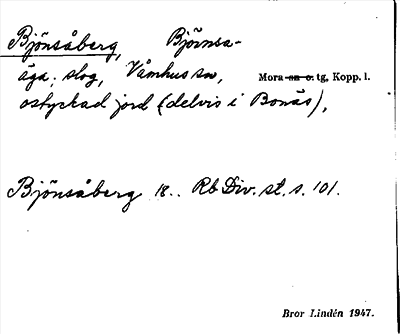 Bjönsåberg, Björnsa-
äga; slog, Våmhus sn, Mora sn o. tg, Kopp. l.
ostyckad jord (delvis i Bonäs),
Bjönsåberg 18.. Rb Div. st. s. 101.
Bror Lindén 1947.